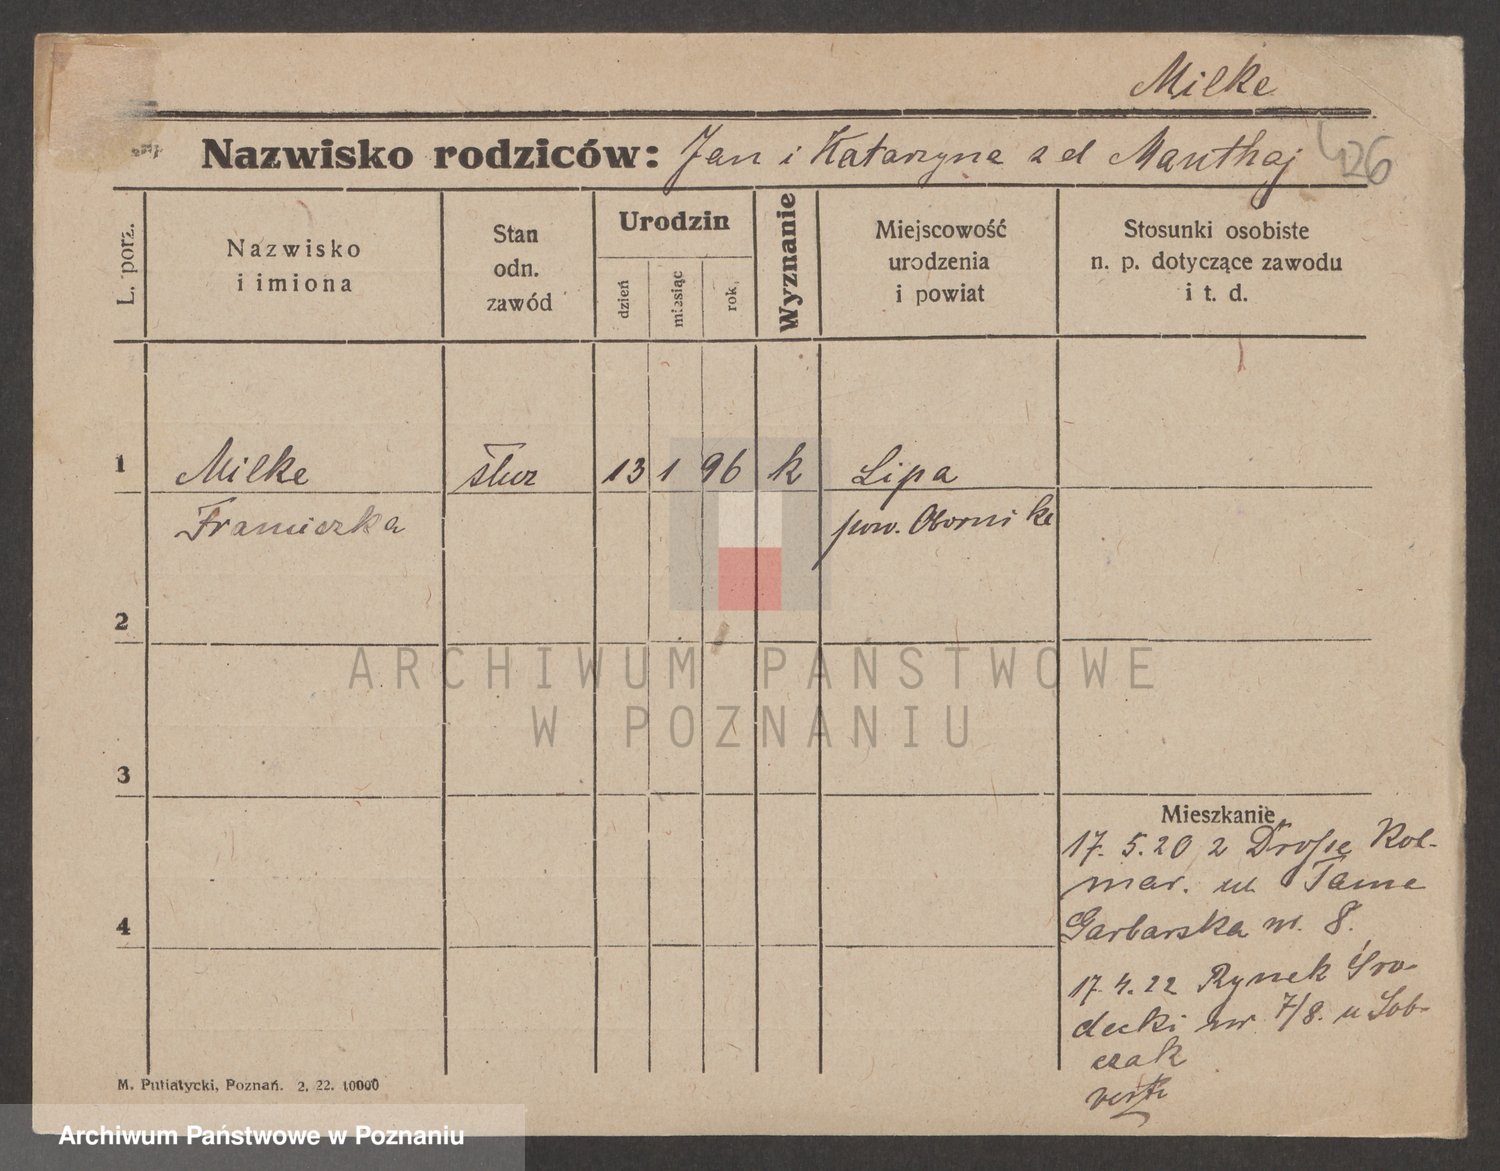 Milke
Nazwisko rodziców: Jan i Katarzyna z d Manthaj
426
L. porz.
Nazwisko
i imiona
Stan
odn.
zawód
Urodzin
dzień
miesiąc
rok
Wyznanie
Miejscowość
urodzenia
i powiat
Stosunki osobiste
n. p. dotyczące zawodu
i t. d.
1 Milke służ 13 1 96 k Lipa
Franciszka pow. Oborniki
2
ARCHIWUM PAŃSTWOWE
W POZNANIU
3
Mieszkanie
17. 5. 20 z Kol-
mar. ul. Tama
4
Garbarska nr. 8.
17. 4. 22 Rynek Śro-
decki nr 7/8. u Sob-
czak
verte
M. Putiatycki, Poznań. 2. 22. 10000
Archiwum Państwowe w Poznaniu